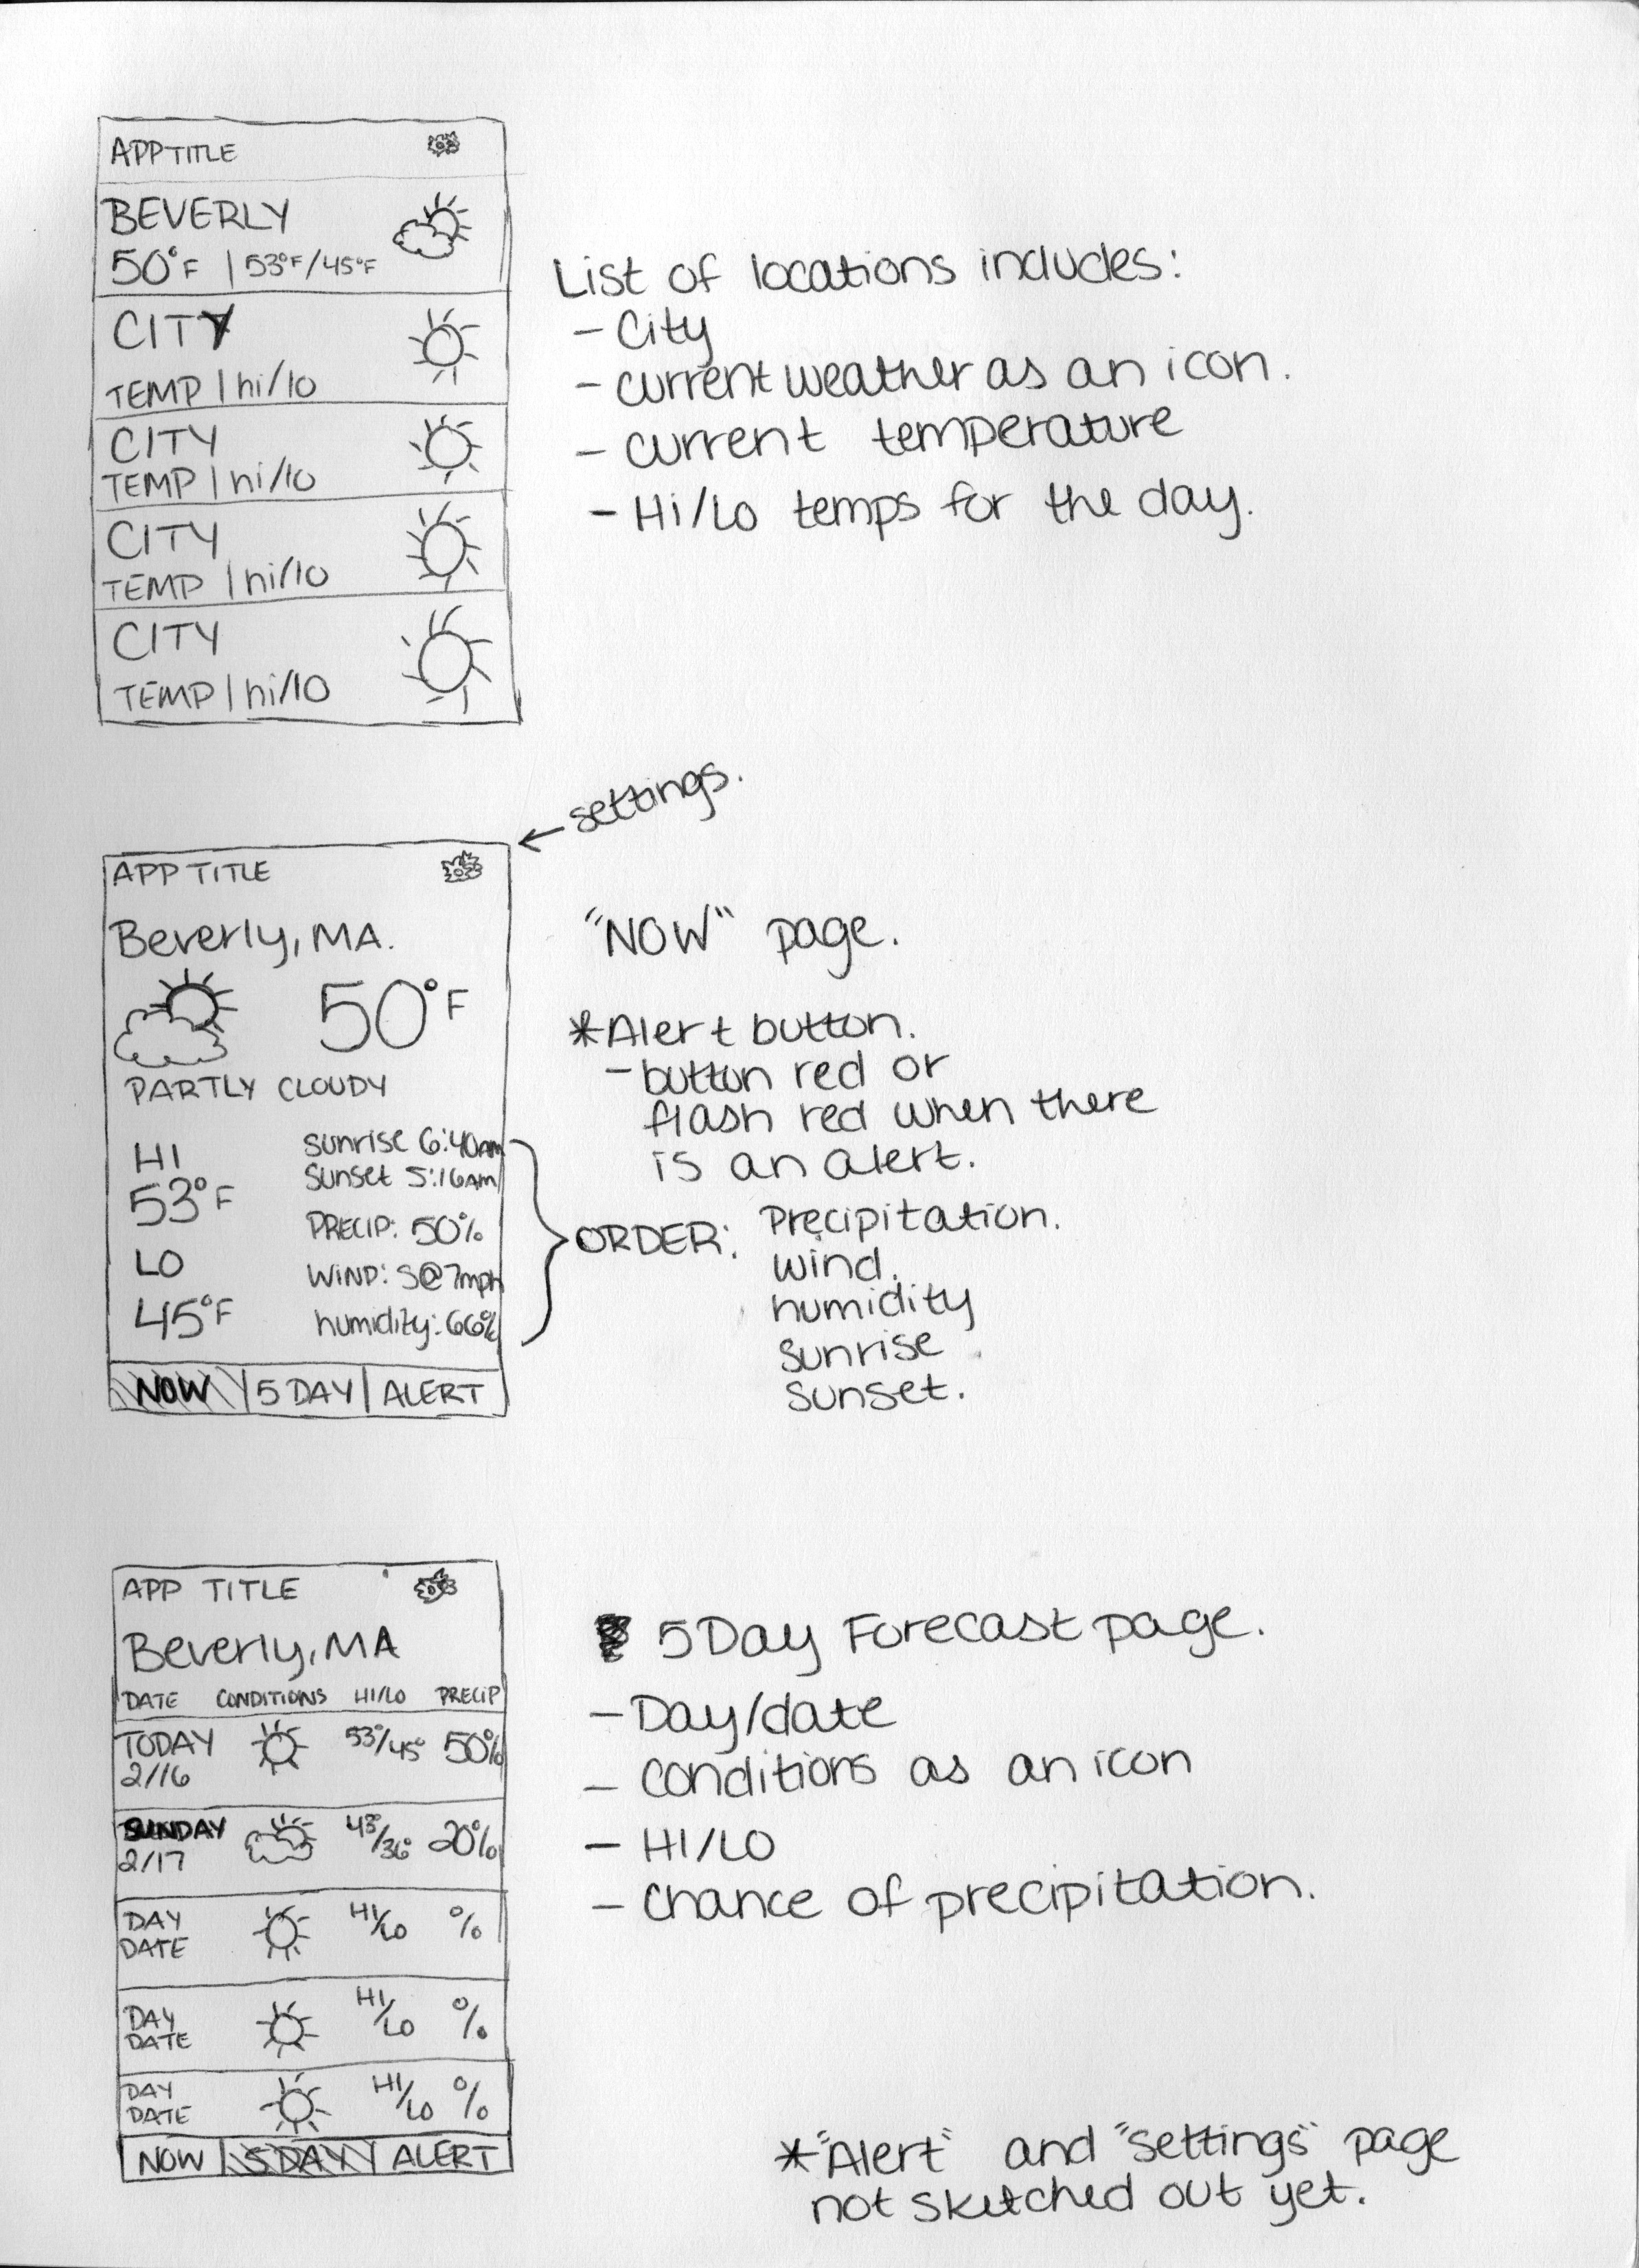 APP TITLE
BEVERLY
50°F | 53°F/45°F
CITY
TEMP | hi/lo
CITY
TEMP | hi/lo
CITY
TEMP | hi/lo
CITY
TEMP | hi/lo
List of locations includes:
- City
- current weather as an icon.
- current temperature
- Hi/Lo temps for the day.
← settings.
APP TITLE
Beverly, MA.
50°F
PARTLY CLOUDY
HI
53°F
LO
45°F
sunrise 6:40AM
sunset 5:16AM
PRECIP: 50%
WIND: S@7mph
humidity: 66%
NOW | 5 DAY | ALERT
"NOW" page.
*Alert button.
- button red or
flash red when there
is an alert.
ORDER: Precipitation.
wind.
humidity
sunrise
sunset.
APP TITLE
Beverly, MA
DATE CONDITIONS HI/LO PRECIP
TODAY 53°/45° 50%
2/16
SUNDAY 43°/36° 20%
2/17
DAY HI/LO %
DATE
DAY HI/LO %
DATE
DAY HI/LO %
DATE
NOW | 5 DAY | ALERT
5 Day Forecast page.
- Day/date
- conditions as an icon
- HI/LO
- Chance of precipitation.
*"Alert" and "settings" page
not sketched out yet.